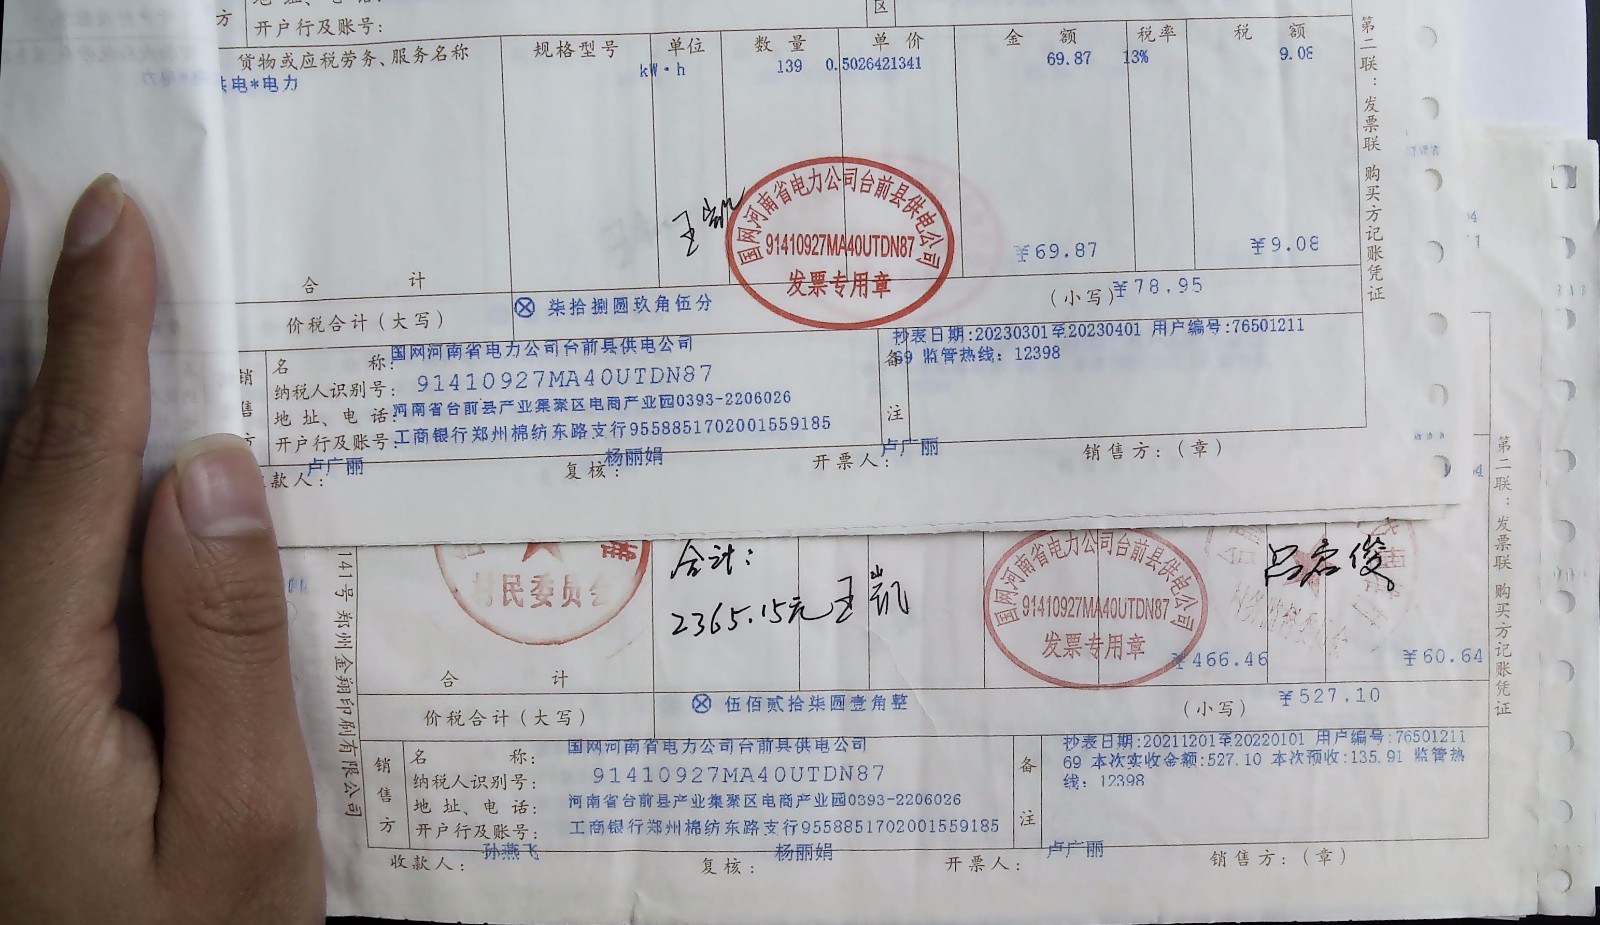 方
开户行及账号:
区
货物或应税劳务、服务名称 规格型号 单位 数量 单价 金额 税率 税额
供电*电力 kW·h 139 0.5026421341 69.87 13% 9.08
王凯
国网河南省电力公司台前县供电公司
91410927MA40UTDN87
发票专用章
合计 ¥69.87 ¥9.08
价税合计(大写) ⊗ 柒拾捌圆玖角伍分 (小写) ¥78.95
销售方
名称: 国网河南省电力公司台前县供电公司
纳税人识别号: 91410927MA40UTDN87
地址、电话: 河南省台前县产业集聚区电商产业园0393-2206026
开户行及账号: 工商银行郑州棉纺东路支行9558851702001559185
备注
抄表日期:20230301至20230401 用户编号:76501211
69 监管热线: 12398
收款人: 卢广丽 复核: 杨丽娟 开票人: 卢广丽 销售方:(章)
第二联:发票联 购买方记账凭证
村民委员会
合计:
2365.15元 王凯
国网河南省电力公司台前县供电公司
91410927MA40UTDN87
发票专用章
吕宏俊
合计 ¥466.46 ¥60.64
价税合计(大写) ⊗ 伍佰贰拾柒圆壹角整 (小写) ¥527.10
销售方
名称: 国网河南省电力公司台前县供电公司
纳税人识别号: 91410927MA40UTDN87
地址、电话: 河南省台前县产业集聚区电商产业园0393-2206026
开户行及账号: 工商银行郑州棉纺东路支行9558851702001559185
备注
抄表日期:20211201至20220101 用户编号:76501211
69 本次实收金额:527.10 本次预收:135.91 监管热
线: 12398
收款人: 孙燕飞 复核: 杨丽娟 开票人: 卢广丽 销售方:(章)
141号郑州金翔印刷有限公司
第二联:发票联 购买方记账凭证